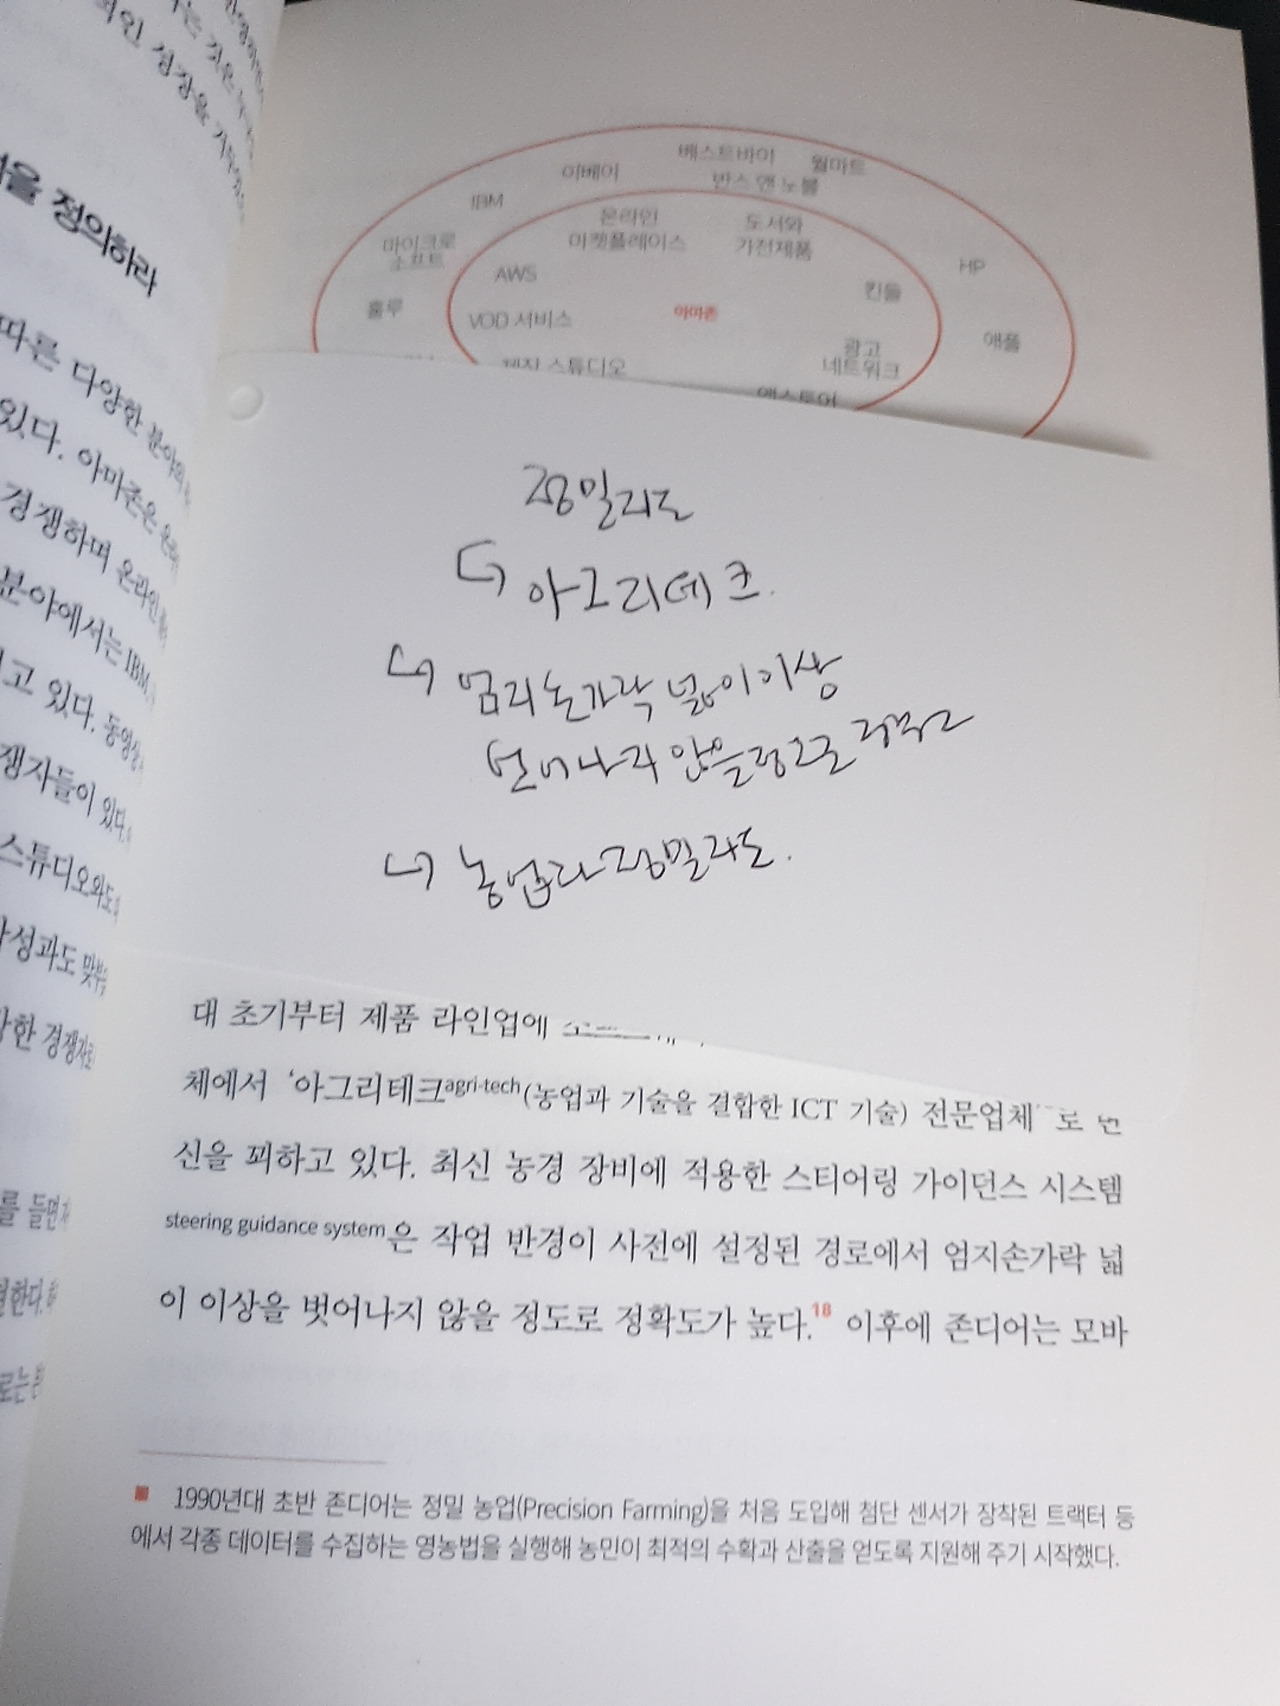 을 정의하라
따른 다양한 분야의
있다. 아마존은 온라
경쟁하며 온라인
분야에서는 IBM,
고 있다. 동영상
쟁자들이 있다.
스튜디오와도
성과도 맞부
한 경쟁자로
를 들면
베스트바이 월마트
이베이 반스 앤 노블
IBM
온라인 도서와
마이크로 마켓플레이스 가전제품
소프트 HP
AWS 킨들
훌루 VOD 서비스 아마존 애플
광고
제작 스튜디오 네트워크
앱스토어
정밀지도
아그리테크.
엄지손가락 넓이 이상
벗어나지 않을 정도로 정확도
농업과 정밀지도.
대 초기부터 제품 라인업에
체에서 ‘아그리테크agri-tech(농업과 기술을 결합한 ICT 기술) 전문업체’로 변
신을 꾀하고 있다. 최신 농경 장비에 적용한 스티어링 가이던스 시스템
steering guidance system은 작업 반경이 사전에 설정된 경로에서 엄지손가락 넓
이 이상을 벗어나지 않을 정도로 정확도가 높다.18 이후에 존디어는 모바
■ 1990년대 초반 존디어는 정밀 농업(Precision Farming)을 처음 도입해 첨단 센서가 장착된 트랙터 등
에서 각종 데이터를 수집하는 영농법을 실행해 농민이 최적의 수확과 산출을 얻도록 지원해 주기 시작했다.